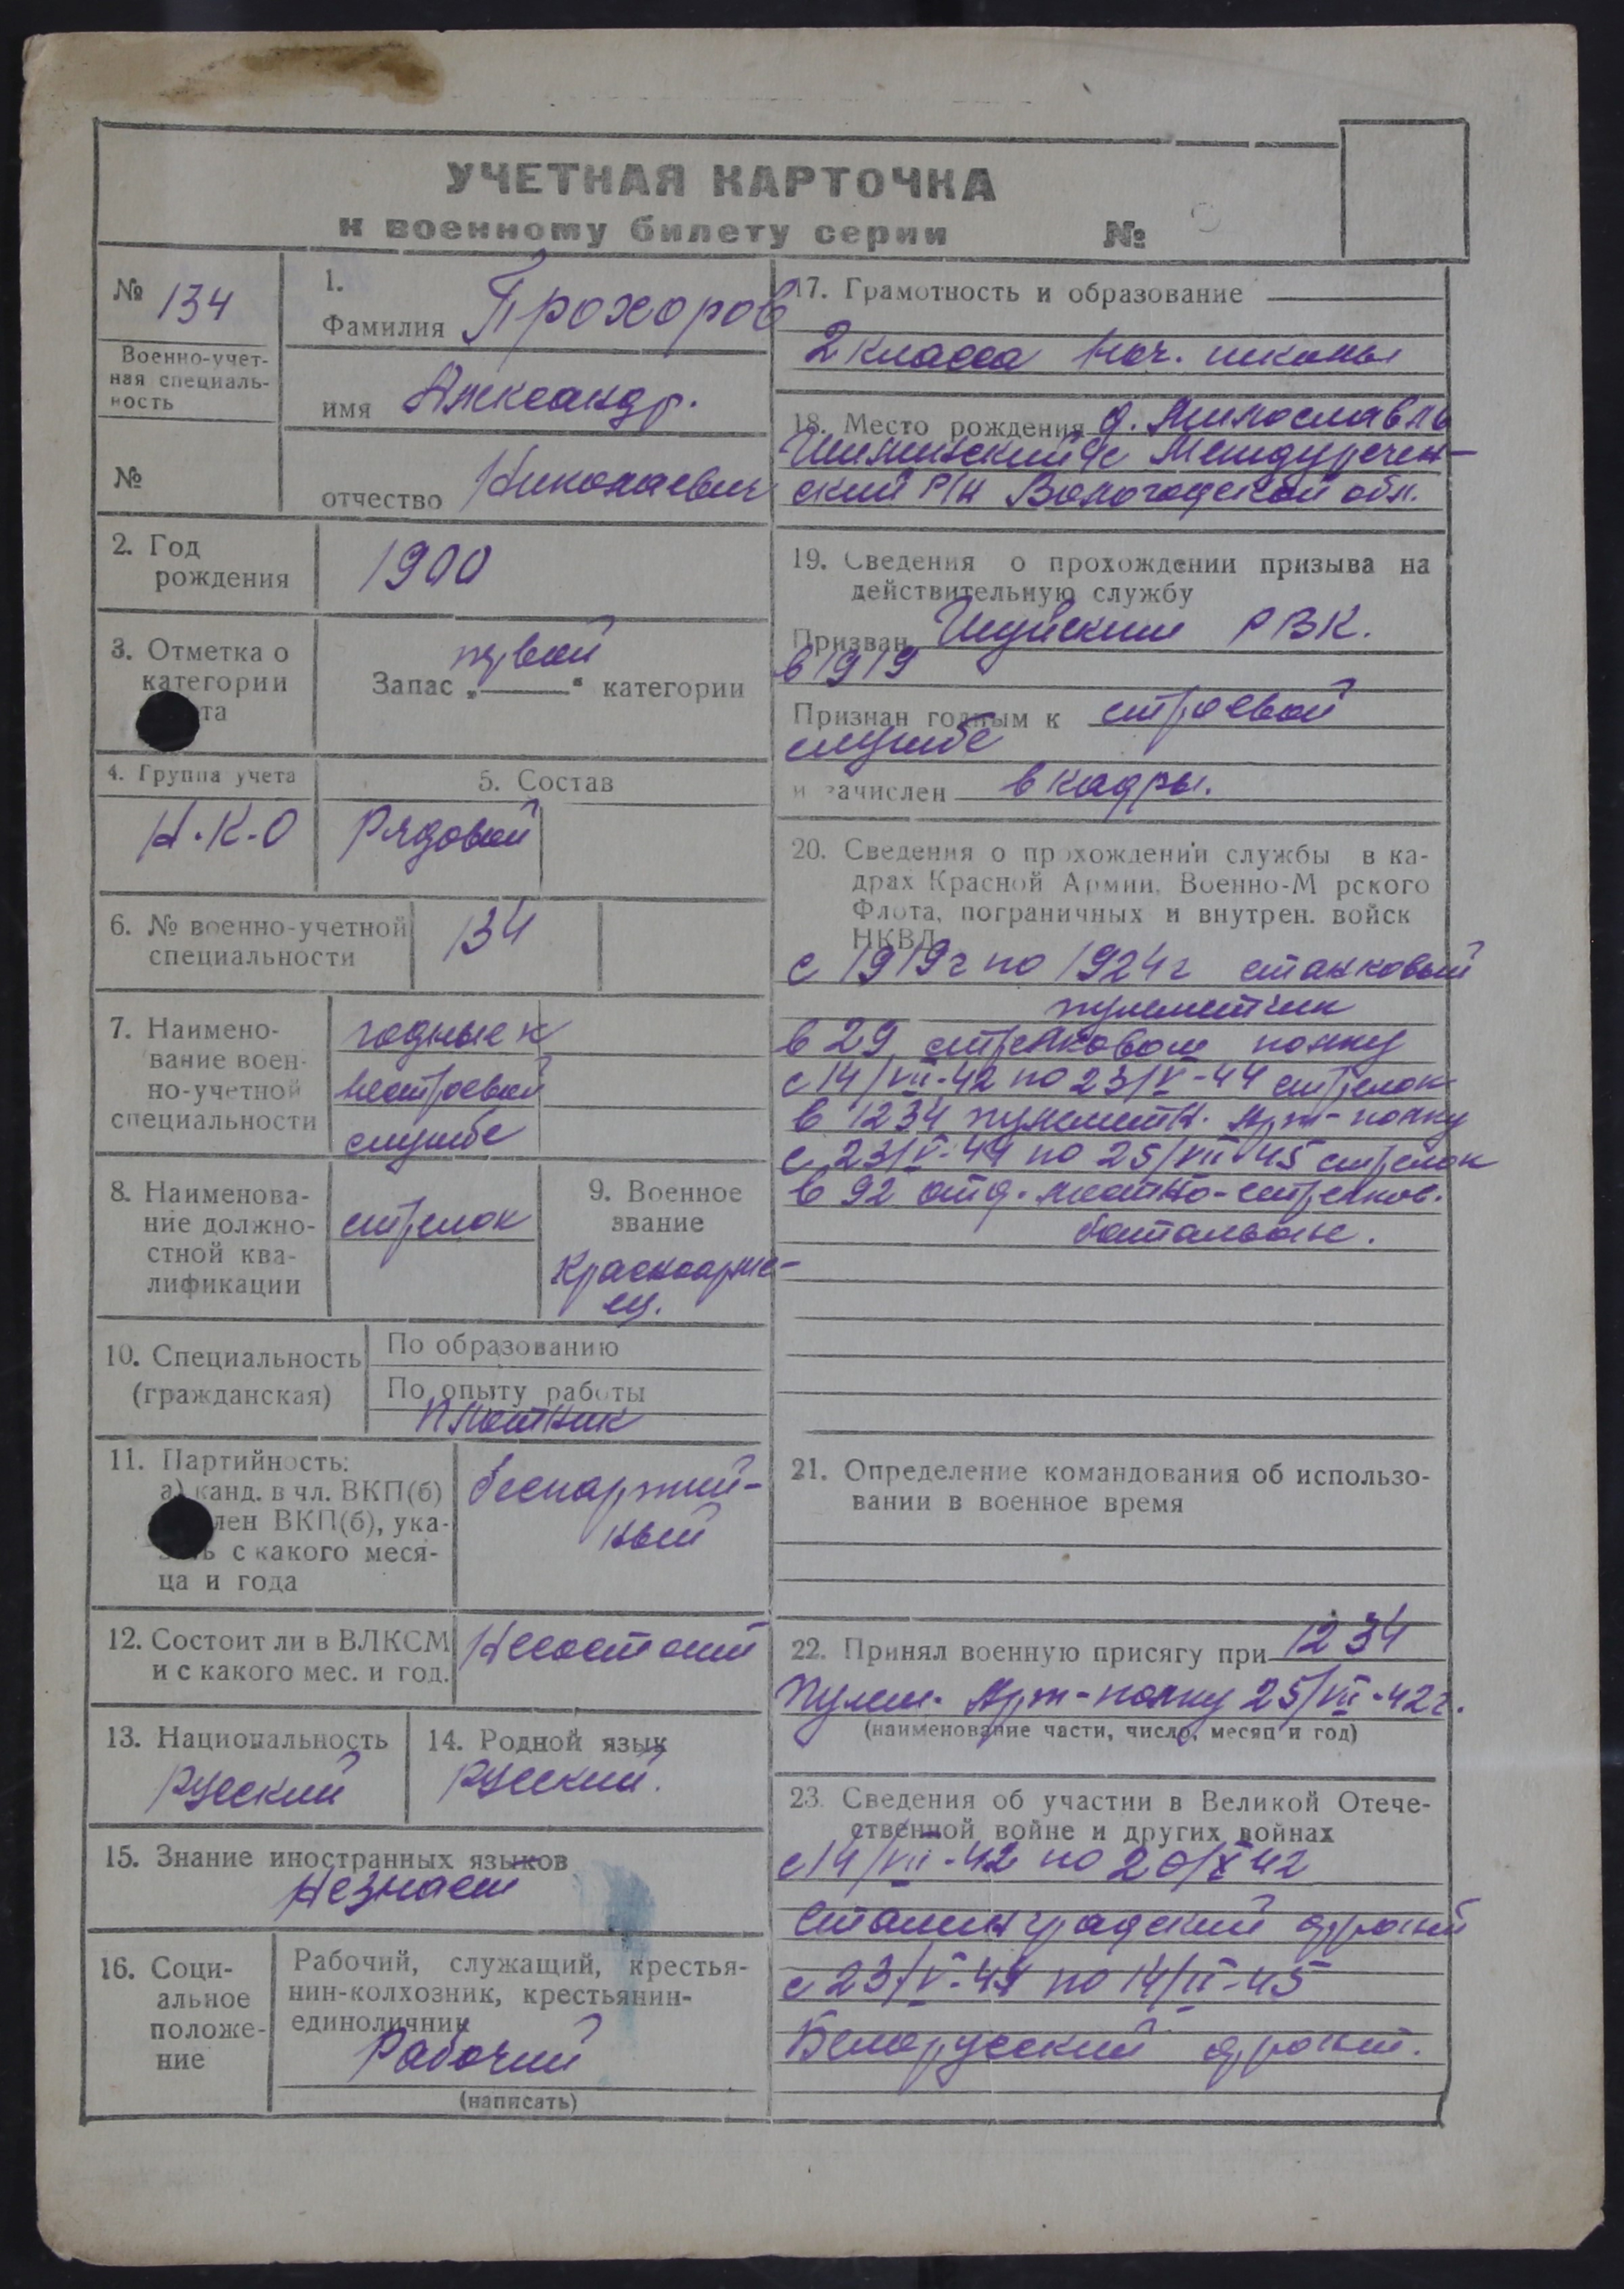 УЧЕТНАЯ КАРТОЧКА
к военному билету серии №
№ 134
Военно-учет-
ная специаль-
ность
№
1.
Фамилия Прохоров
имя Александр.
отчество Николаевич
2. Год
рождения
1900
3. Отметка о
категории
та
первой
Запас „ “ категории
4. Группа учета
Н.К.О
5. Состав
Рядовой
6. № военно-учетной
специальности
134
7. Наимено-
вание воен-
но-учетной
специальности
годные к
нестроевой
службе
8. Наименова-
ние должно-
стной ква-
лификации
стрелок
9. Военное
звание
Красноарме-
ец.
10. Специальность
(гражданская)
По образованию
По опыту работы
Плотник
11. Партийность:
а) канд. в чл. ВКП(б)
лен ВКП(б), ука-
ь с какого меся-
ца и года
беспартий-
ный
12. Состоит ли в ВЛКСМ
и с какого мес. и год.
Несостоит
13. Национальность
Русский
14. Родной язык
Русский.
15. Знание иностранных языков
Незнает
16. Соци-
альное
положе-
ние
Рабочий, служащий, крестья-
нин-колхозник, крестьянин-
единоличник
Рабочий
(написать)
17. Грамотность и образование
2 класса нач. школы
18. Место рождения д. Милославль
Междуречен-
ский р/н Вологодской обл.
19. Сведения о прохождении призыва на
действительную службу
Призван Шуйским РВК.
в 1919
Признан годным к строевой
службе
и зачислен в кадры.
20. Сведения о прохождении службы в ка-
драх Красной Армии, Военно-М рского
Флота, пограничных и внутрен. войск
НКВД
с 1919г по 1924г станковый
пулеметчик
в 29 стрелковом полку
с 14/VII-42 по 23/V-44 стрелок
в 1234 пулеметн. Арт-полку
с 23/V-44 по 25/VII-45 стрелок
в 92 отд. мотто-стрелков.
батальоне.
21. Определение командования об использо-
вании в военное время
22. Принял военную присягу при 1234
Пулем. Арт-полку 25/VII-42г.
(наименование части, число, месяц и год)
23. Сведения об участии в Великой Отече-
ственной войне и других войнах
с 14/VII-42 по 20/X 42
Сталинградский фронт
с 23/V-44 по 14/II-45
Белорусский фронт.